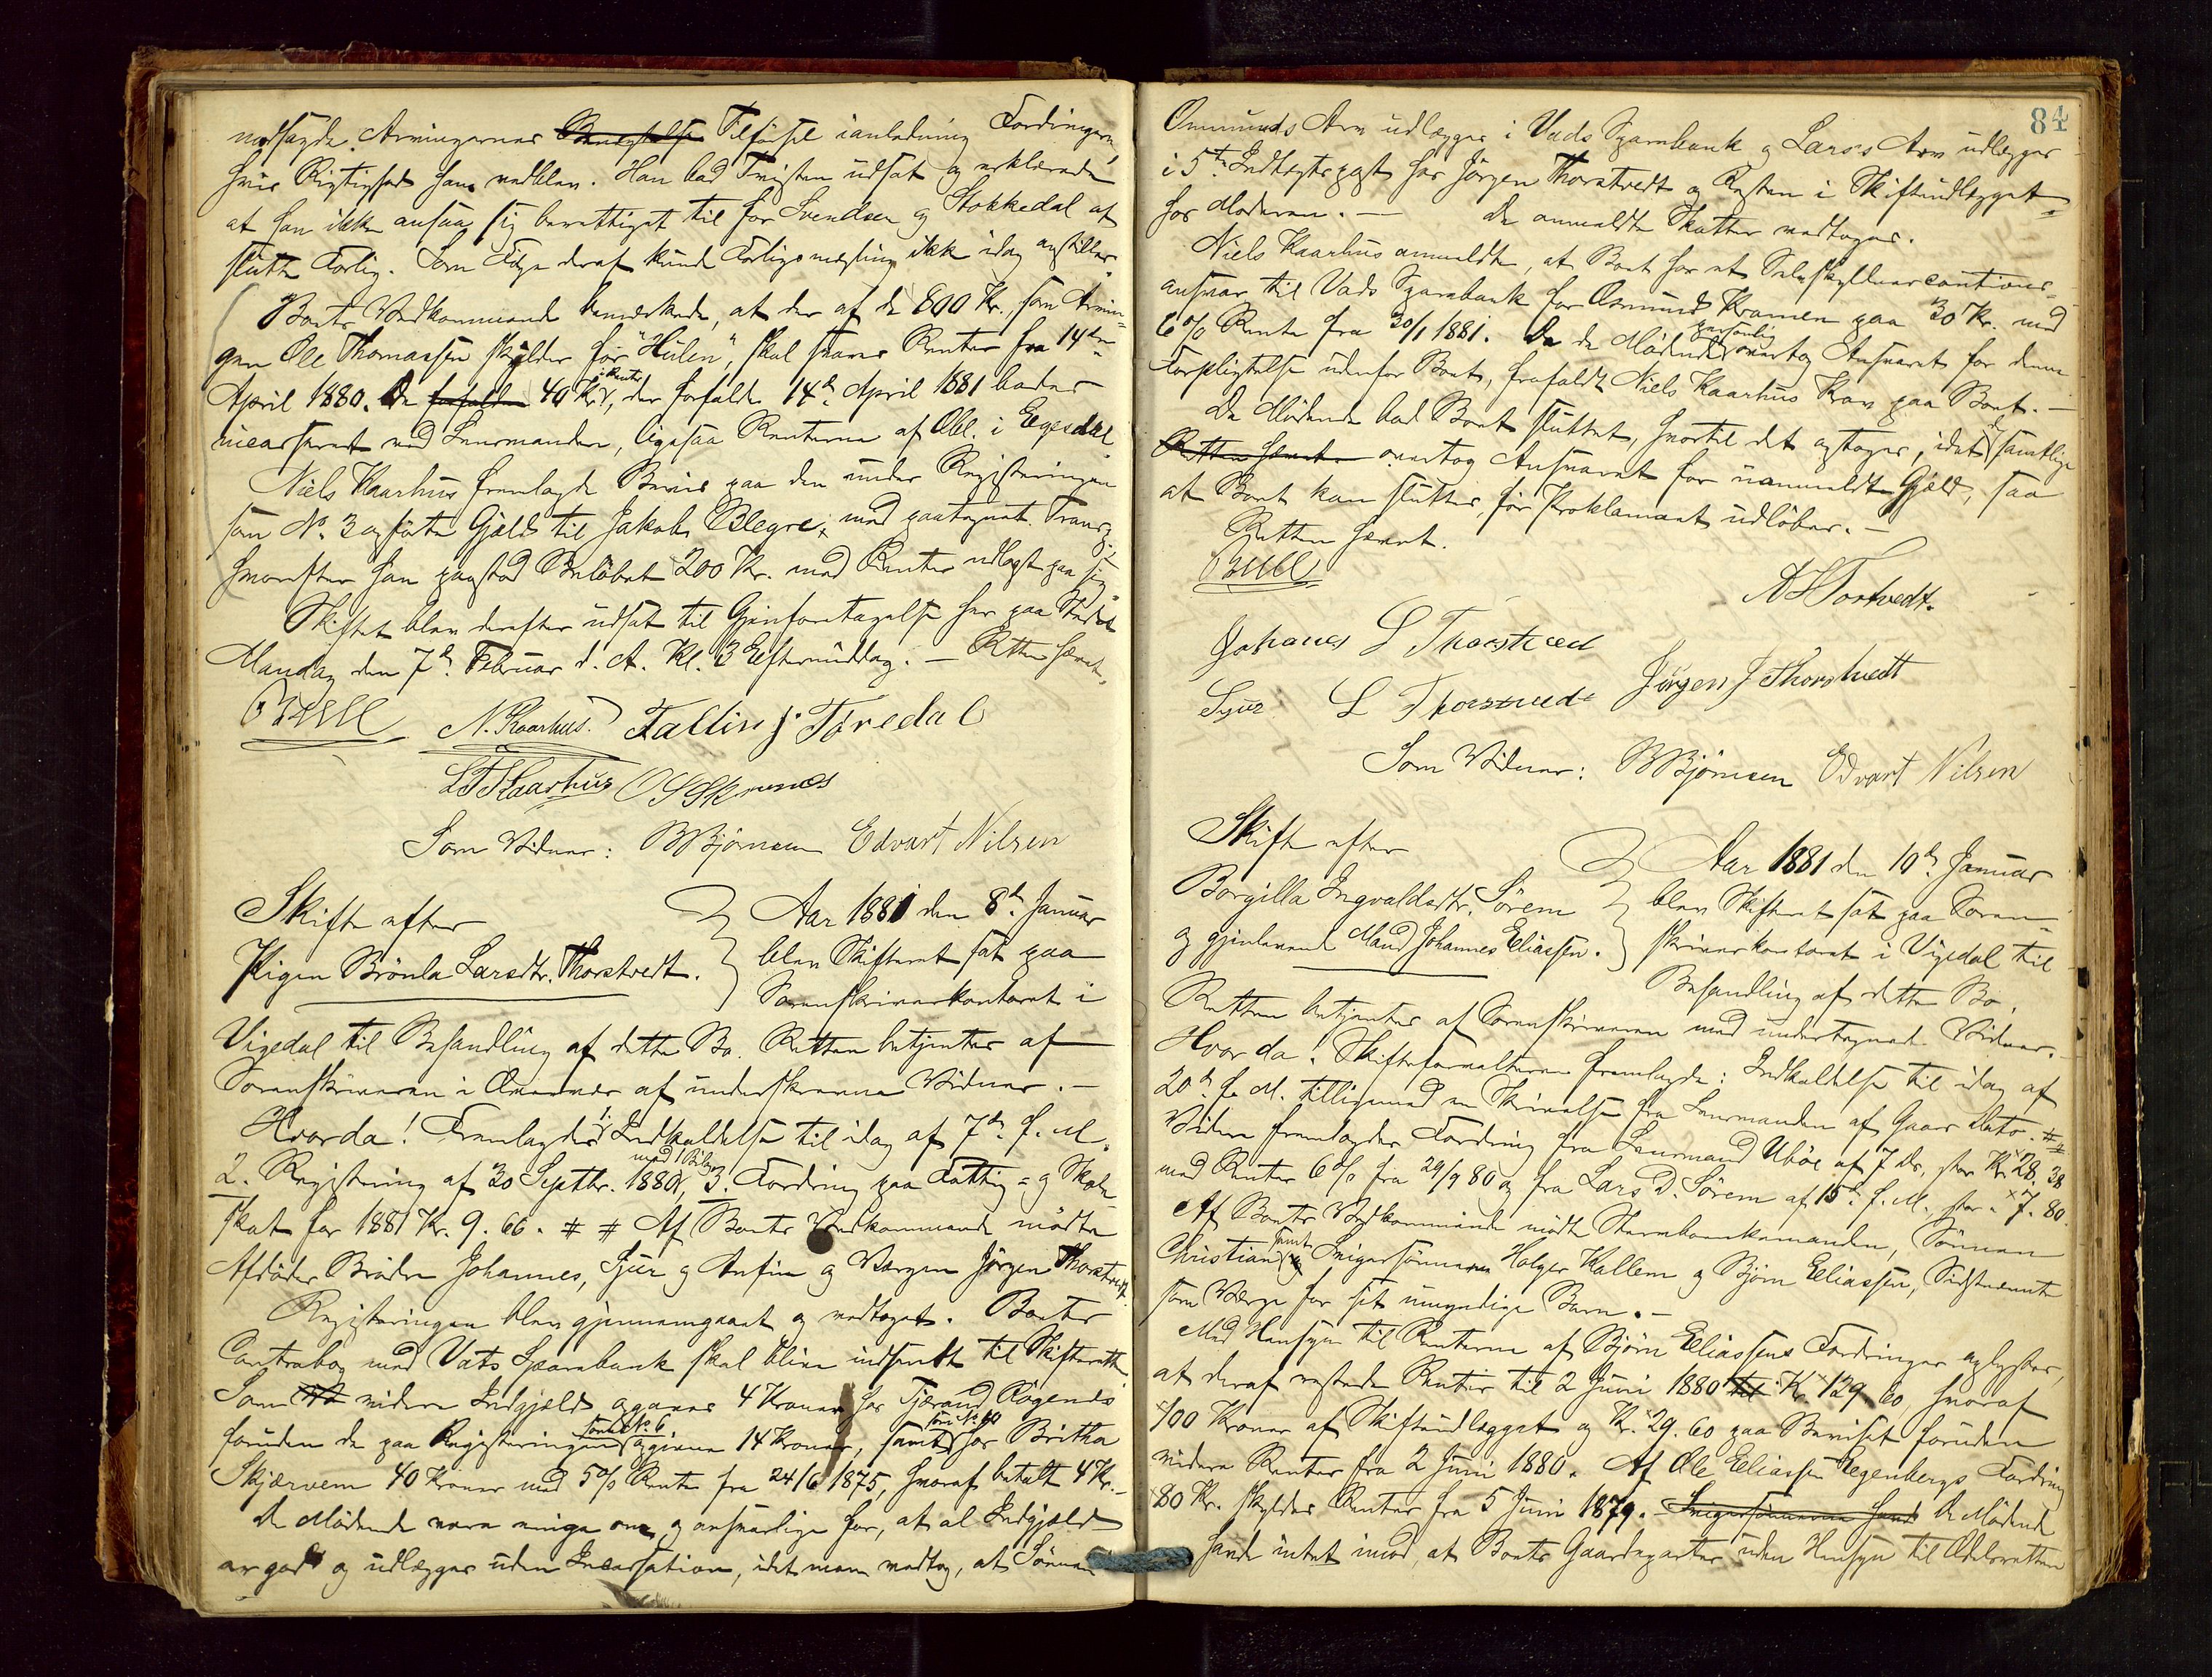 modsagde Arvingernes Tilførsel ianledning Fordringen,
hvis Rigtighed han vedblev. Han bad Tvisten udsat og erklærede
at han ikke ansaa sig berettiget til for Svendsen og Stokkedal at
slutte Forlig. Som Følge deraf kunde Forligsmægling ikke idag anstilles.
Boets Vedkommende bemærkede, at der af de 800 Kr. som Arvin-
gen Ole Thomassen skylder for "Hulen", skal svares Renter fra 14de
April 1880. De forfaldne 40 Kr. i Renter, der forfaldt 14de April 1881 bedes
incasseret ved Lensmanden, ligesaa Renterne af Obl. i Egesdal.
Niels Kaarhus fremlagde Bevis paa den under Registreringen
som No. 3 opførte Gjæld til Jakob Blegre, med paategnet Transp.,
hvorefter han paastod Beløbet 200 Kr. med Renter udlagt paa sig
Skiftet blev derefter udsat til Gjenforetagelse her paa Stedet
Mandag den 7de Februar d. A. Kl. 3 Eftermiddag. — Retten hævet.
Bull N. Kaarhus. Fallin J. Töredal
L T Kaarhus O S Skrunes
Som Vidner: B Bjørnsen Edvart Nilsen
Skifte efter
Pigen Brönla Larsdtr. Thorstvedt.
Aar 1881 den 8de Januar
blev Skifteret sat paa
Sorenskriverkontoret i
Vigedal til Behandling af dette Bo. Retten betjentes af
Sorenskriveren i Overvær af underskrevne Vidner. —
Hvorda! Fremlagdes 1. Indkaldelse til idag af 7de f. M.
2. Registrering af 30 Septbr. 1880 med 1 Bilag, 3. Fordring paa Fattig- og Skole-
skat for 1881 Kr. 9. 66. # # Af Boets Vedkommende mødte
Afdødes Brødre Johannes, Sjur og Anfin og Værgen Jörgen Thorstvedt.
Registreringen blev gjennemgaaet og vedtaget. Boets
Contrabog med Vats Sparebank skal blive indsendt til Skifteretten
Som videre Indgjæld opgaves 4 Kroner hos Tjerand Rögends
foruden de paa Registreringen som No 6 opgivne 14 Kroner, samt som No 10 hos Britha
Skjærvem 40 Kroner med 5% Rente fra 24/6 1875, hvoraf betalt 4 Kr. –
De Mødende vare enige om, og ansvarlige for, at al Indgjæld
er god og udlægges uden Incassation, idet man vedtog, at Sönnen
84
Ommunds Arv udlægges i Vads Sparebank og Lars's Arv udlægges
i 5te Indtægtspost hos Jörgen Thorstvedt og Resten i Skifteudlægget
hos Moderen. — De anmeldte Skatter vedtoges.
Niels Kaarhus anmeldte, at Boet har et Selvskyldnercautions-
ansvar til Vads Sparebank for Osmund Kramen paa 30 Kr. med
6% Rente fra 30/1 1881. Da de Mødende personlig overtog Ansvaret for denne
Forpligtelse udenfor Boet, frafaldt Niels Kaarhus Krav paa Boet. —
De Mødende bad Boet sluttet, hvortil det optages, idet samtlige
Retten hævet overtog Ansvaret for uanmeldt Gjæld, saa
at Boet kan sluttes, før Proklamaet udløber. —
Retten hævet.
Bull
A L Torstvedt.
Johanes L Thorstved
Sjur L Thorstvedt Jørgen J Thorstvedt
Som Vidner: B Bjørnsen Edvart Nilsen
Skifte efter
Borgilla Ingvaldsdtr. Sörem
og gjenlevende Mand Johannes Eliassen.
Aar 1881 den 10de Januar
blev Skifteret sat paa Soren-
skriverkontoret i Vigedal til
Behandling af dette Bo.
Retten betjentes af Sorenskriveren med undertegnede Vidner. —
Hvorda! Skifteforvalteren fremlagde: Indkaldelse til idag af
20de f. M. tilligemed en Skrivelse fra Lensmanden af Gaars Dato. # #
Videre fremlagdes Fordring fra Lensmand Ubøe af 7 ds, stor Kr. 28. 38
med Renter 6% fra 29/9 80 og fra Lars D. Sörem af 15de f. M., stor " 7. 80.
Af Boets Vedkommende mødte Sterbboenkemanden, Sönnen
Christian samt Svigersönnerne Holger Kallem og Bjørn Eliassen, Sidstnævnte
som Værge for sit umyndige Barn. —
Med Hensyn til Renterne af Bjørn Eliassens Fordringer oplystes,
at deraf restede Renter til 2 Juni 1880 Kr. 129. 60, hvoraf
100 Kroner af Skifteudlægget og Kr. 29. 60 paa Beviset foruden
videre Renter fra 2 Juni 1880. Af Ole Eliassen Egenbergs Fordring
80 Kr. skyldes Renter fra 5 Juni 1879. Svigersönnerne havde De Mødende
havde intet imod, at Boets Gaardeparter uden Hensyn til Odelsretten